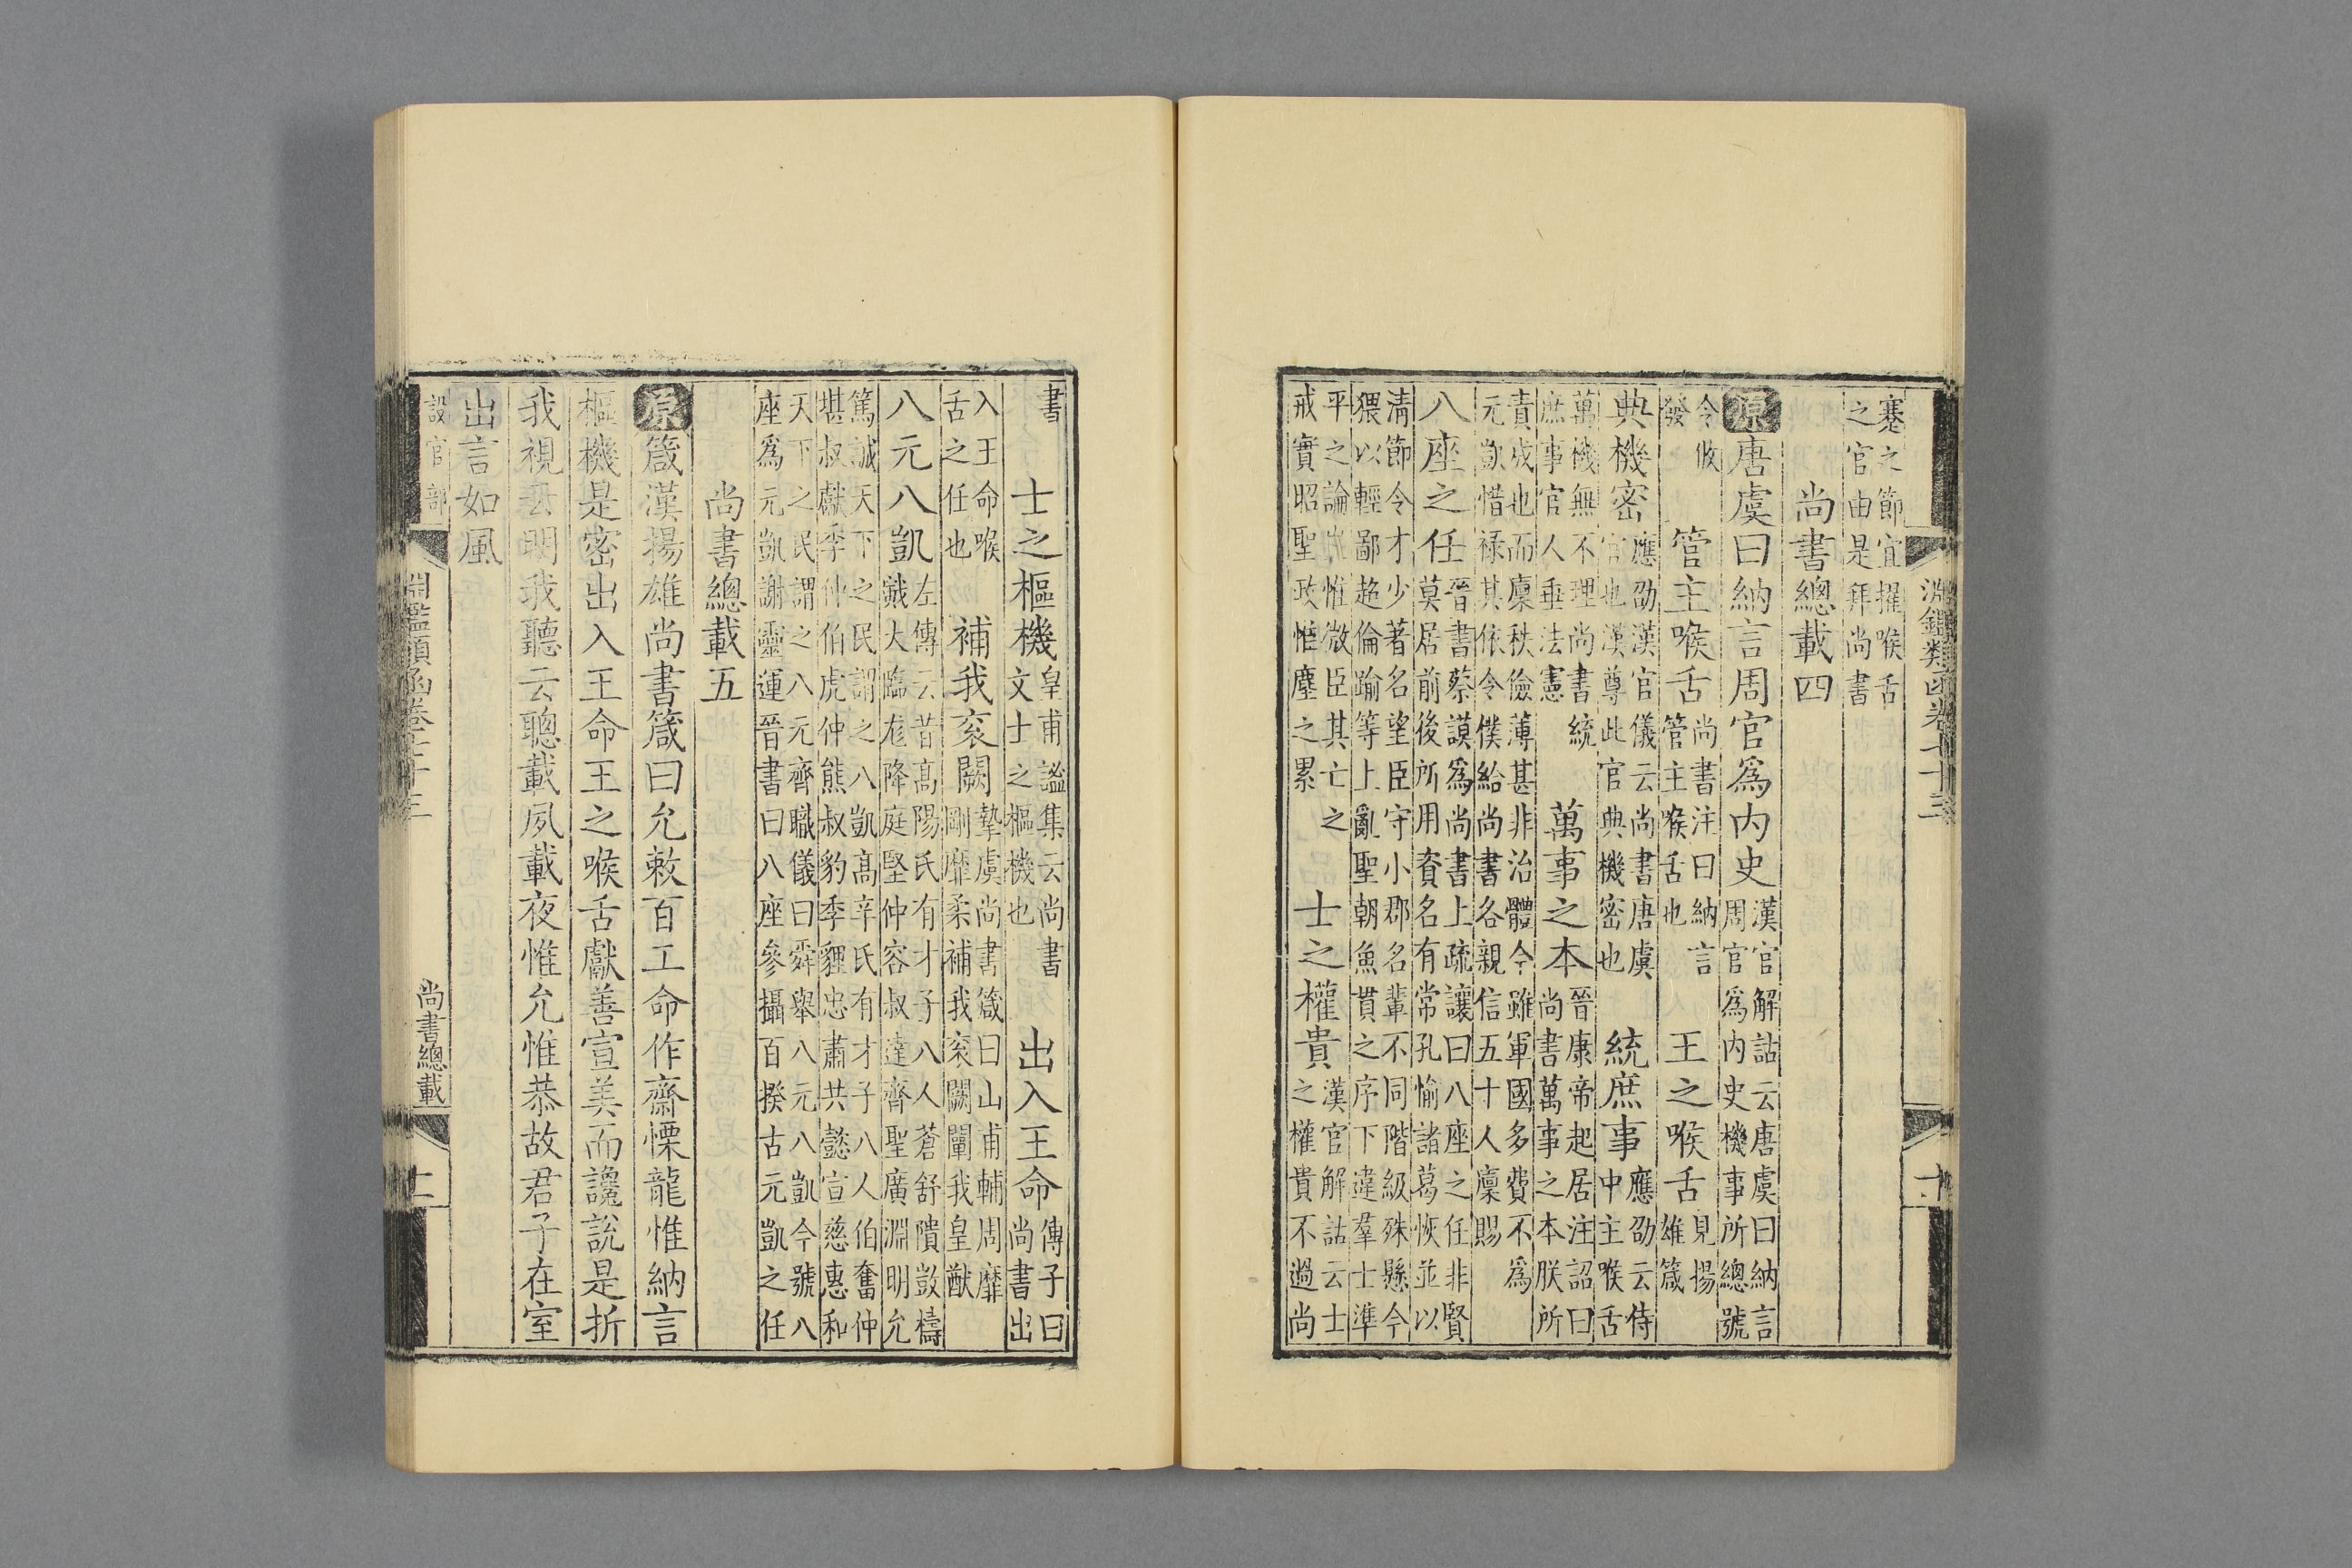 淵鑑類函卷七十三 十
蹇之節宜擢喉舌之官由是拜尚書
尚書總載四
原唐虞曰納言周官爲内史漢官解詁云唐虞曰納言周官爲内史機事所總號
令攸發 管主喉舌尚書注曰納言管主喉舌也 王之喉舌見揚雄箴
典機密應劭漢官儀云尚書唐虞官也漢尊此官典機密也 統庶事應劭云侍中主喉舌
萬機無不理尚書統庶事官人垂法憲 萬事之本晉康帝起居注詔曰尚書萬事之本朕所
責成也而廩秩儉薄甚非治體今雖軍國多費不爲元凱惜祿其依令僕給尚書各親信五十人廩賜
八座之任晉書蔡謨爲尚書上疏讓曰八座之任非賢莫居前後所用資名有常孔愉諸葛恢並以
清節令才少著名望臣守小郡名輩不同階級殊懸今猥以輕鄙超倫踰等上亂聖朝魚貫之序下違羣士準
平之論豈惟微臣其亡之戒實昭聖政惟塵之累 士之權貴漢官解詁云士之權貴不過尚
書 士之樞機皇甫謐集云尚書文士之樞機也 出入王命傅子曰尚書出
入王命喉舌之任也 補我袞闕摯虞尚書箴曰山甫輔周靡剛靡柔補我袞闕闡我皇猷
八元八凱左傳云昔高陽氏有才子八人蒼舒隤敳檮戭大臨尨降庭堅仲容叔達齊聖廣淵明允
篤誠天下之民謂之八凱高辛氏有才子八人伯奮仲堪叔獻季仲伯虎仲熊叔豹季貍忠肅共懿宣慈惠和
天下之民謂之八元齊職儀曰舜舉八元八凱今號八座爲元凱謝靈運晉書曰八座參攝百揆古元凱之任
尚書總載五
原箴漢揚雄尚書箴曰允敕百工命作齋慄龍惟納言
樞機是密出入王命王之喉舌獻善宣美而讒說是折
我視云明我聽云聰載夙載夜惟允惟恭故君子在室
出言如風
設官部 淵鑑類函卷七十三 尚書總載 十一